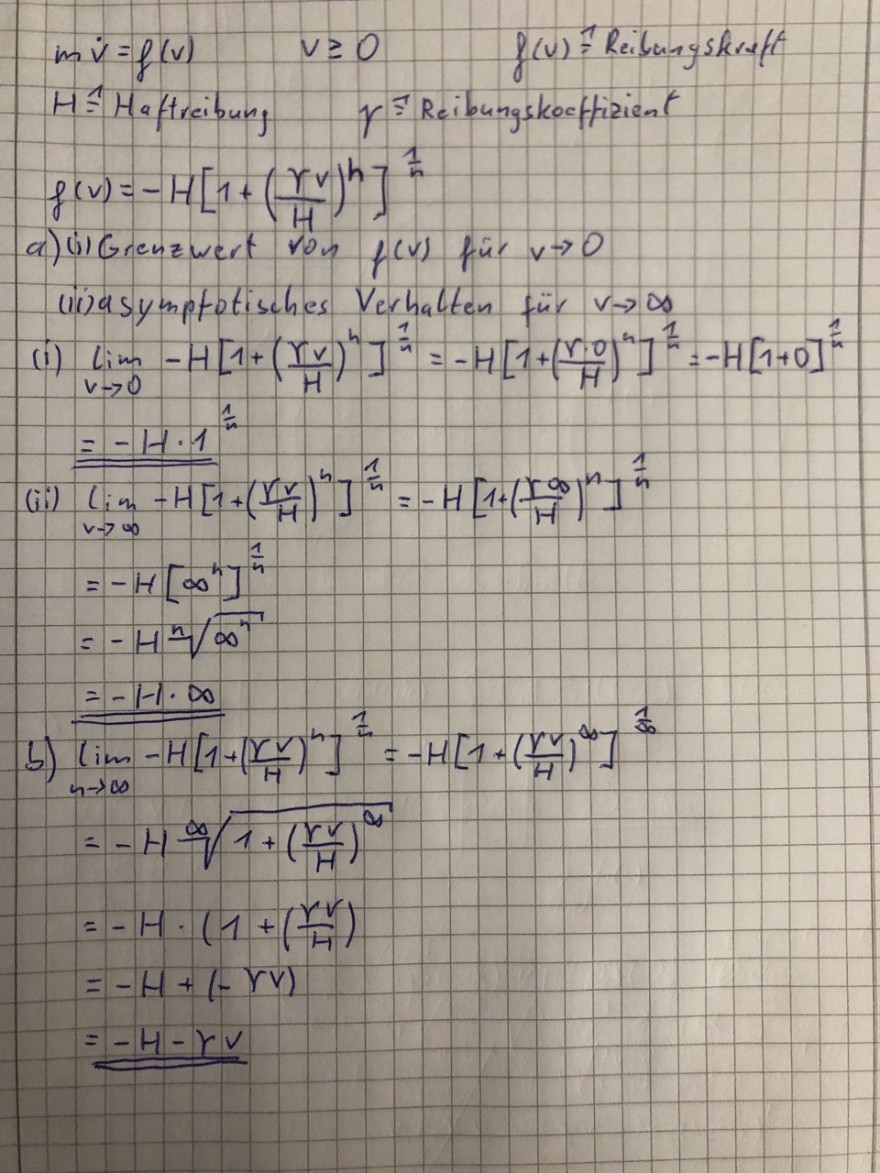 m v̇ = f(v) v ≥ 0 f(v) ≙ Reibungskraft
H ≙ Haftreibung γ ≙ Reibungskoeffizient
f(v) = - H [1 + (γv/H)^n]^(1/n)
a) (i) Grenzwert von f(v) für v → 0
(ii) asymptotisches Verhalten für v → ∞
(i) lim_(v→0) - H [1 + (γv/H)^n]^(1/n) = - H [1 + (γ·0/H)^n]^(1/n) = - H [1+0]^(1/n)
= - H · 1^(1/n)
(ii) lim_(v→∞) - H [1 + (γv/H)^n]^(1/n) = - H [1 + (γ∞/H)^n]^(1/n)
= - H [∞^n]^(1/n)
= - H ⁿ√(∞^n)
= - H · ∞
b) lim_(n→∞) - H [1 + (γv/H)^n]^(1/n) = - H [1 + (γv/H)^∞]^(1/∞)
= - H ∞√(1 + (γv/H)^∞)
= - H · (1 + (γv/H)
= - H + (- γv)
= - H - γv